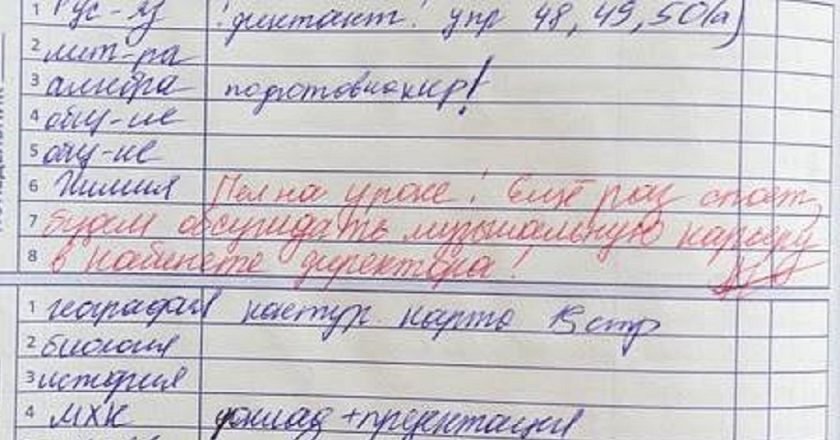 1 Рус-яз !диктант! упр 48, 49, 50(а)
2 лит-ра
3 алгебра подготов к к/р!
4 общ-ие
5 общ-ие
6 Химия Пел на уроке! Ещё раз споет,
7 будем обсуждать музыкальную карьеру
8 в кабинете директора!
1 география контур карта 15 стр
2 биология
3 история
4 МХК доклад + презентация